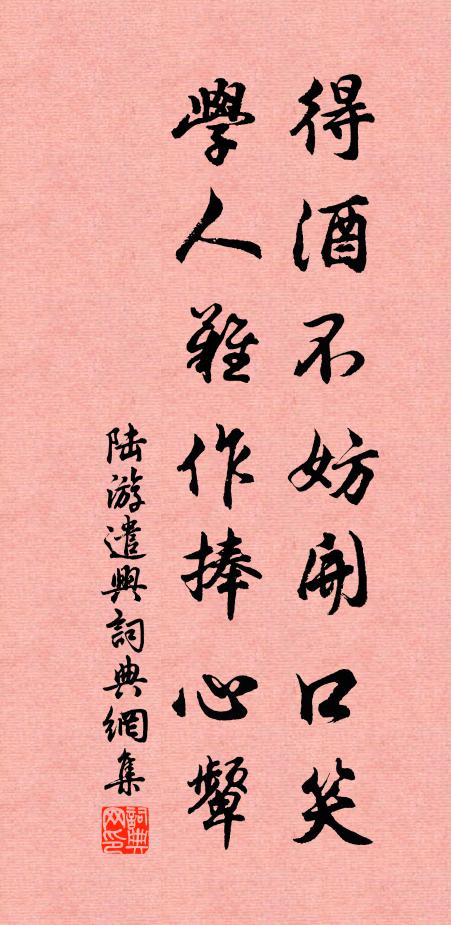 得酒不妨開口笑
學人難作捧心顰
陸游遣興詞典網集
詞典网印